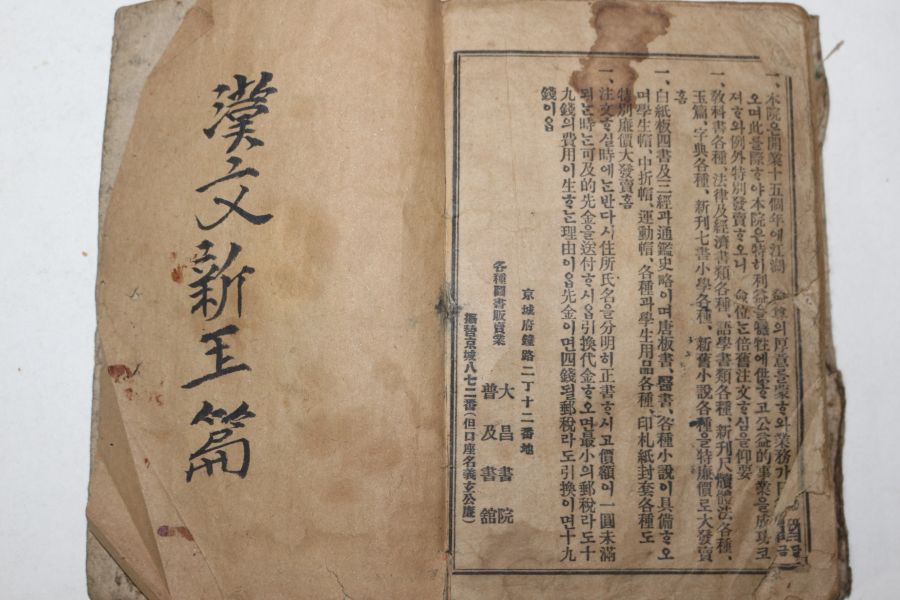 漢文新玉篇
一、本院은開業十五個年에江湖 僉尊의厚意를蒙ᄒᆞ와業務가日
오며此를際ᄒᆞ야本院은特히利益을犧牲에供ᄒᆞ고公益的事業을成코
져ᄒᆞ와例外特別發賣ᄒᆞ오니 僉位는倍舊注文ᄒᆞ심을仰要
一、敎科書各種、法律及經濟書類各種、語學書類各種、新刊尺牘體法各種、
玉篇、字典各種、新刊七書小學各種、新舊小說各種을特廉價로大發賣
홈
一、白紙板四書及三經과通鑑史略이며唐板書、醫書、各種小說이具備ᄒᆞ오
며學生帽、中折帽、運動帽、各種과學生用品各種、印札紙封套各種도
特別廉價大發賣홈
一、注文ᄒᆞ실時에는반다시住所氏名을分明히正書ᄒᆞ시고價額이一圓未滿
되는時는可及的先金을送付ᄒᆞ시옵引換代金ᄒᆞ오면最小의郵稅라도十
九錢의費用이生ᄒᆞ는理由이옵先金이면四錢될郵稅라도引換이면十九
錢이옵
京城府鐘路二丁十二番地
各種圖書販賣業
大昌書院
普及書舘
振替京城八七二番(但口座名義玄公廉)